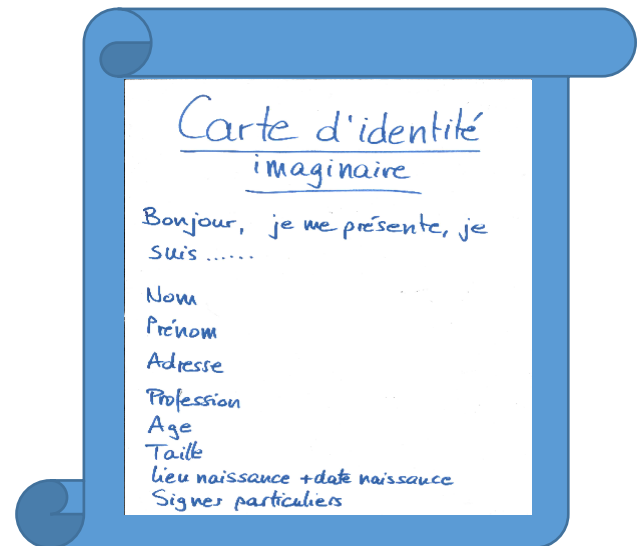 Carte d'identité
imaginaire
Bonjour, je me présente, je
suis ......
Nom
Prénom
Adresse
Profession
Age
Taille
lieu naissance + date naissance
Signes particuliers